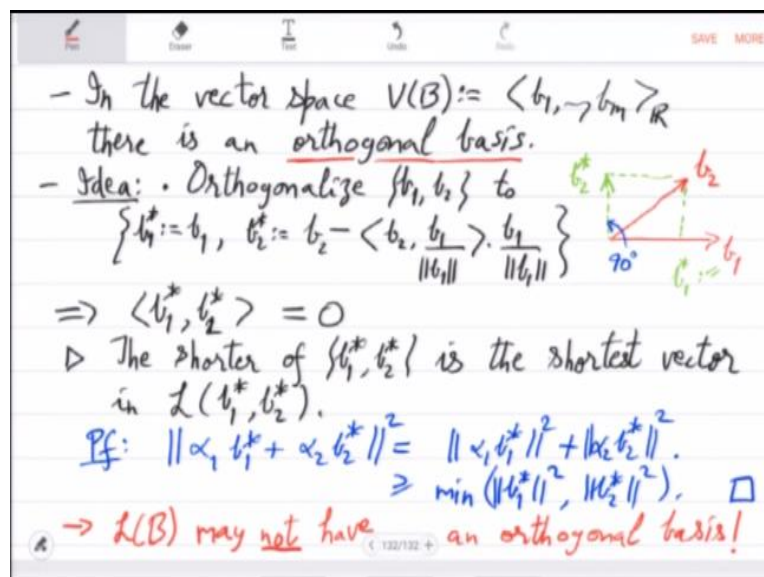 Pen Eraser Text Undo Redo SAVE MORE
- In the vector space V(B):= <b₁,⇝,bₘ>_ℝ
there is an orthogonal basis.
- Idea: · Orthogonalize {b₁, b₂} to
{b₁* := b₁, b₂* := b₂ - <b₂, b₁/||b₁||> · b₁/||b₁||}
b₂* b₂
90° b₁
b₁* :=
=> <b₁*, b₂*> = 0
▷ The shorter of {b₁*, b₂*} is the shortest vector
in ℒ(b₁*, b₂*).
Pf: ||α₁ b₁* + α₂ b₂*||² = ||α₁ b₁*||² + ||α₂ b₂*||².
≥ min (||b₁*||², ||b₂*||²). □
→ ℒ(B) may not have an orthogonal basis!
< 132/132 +